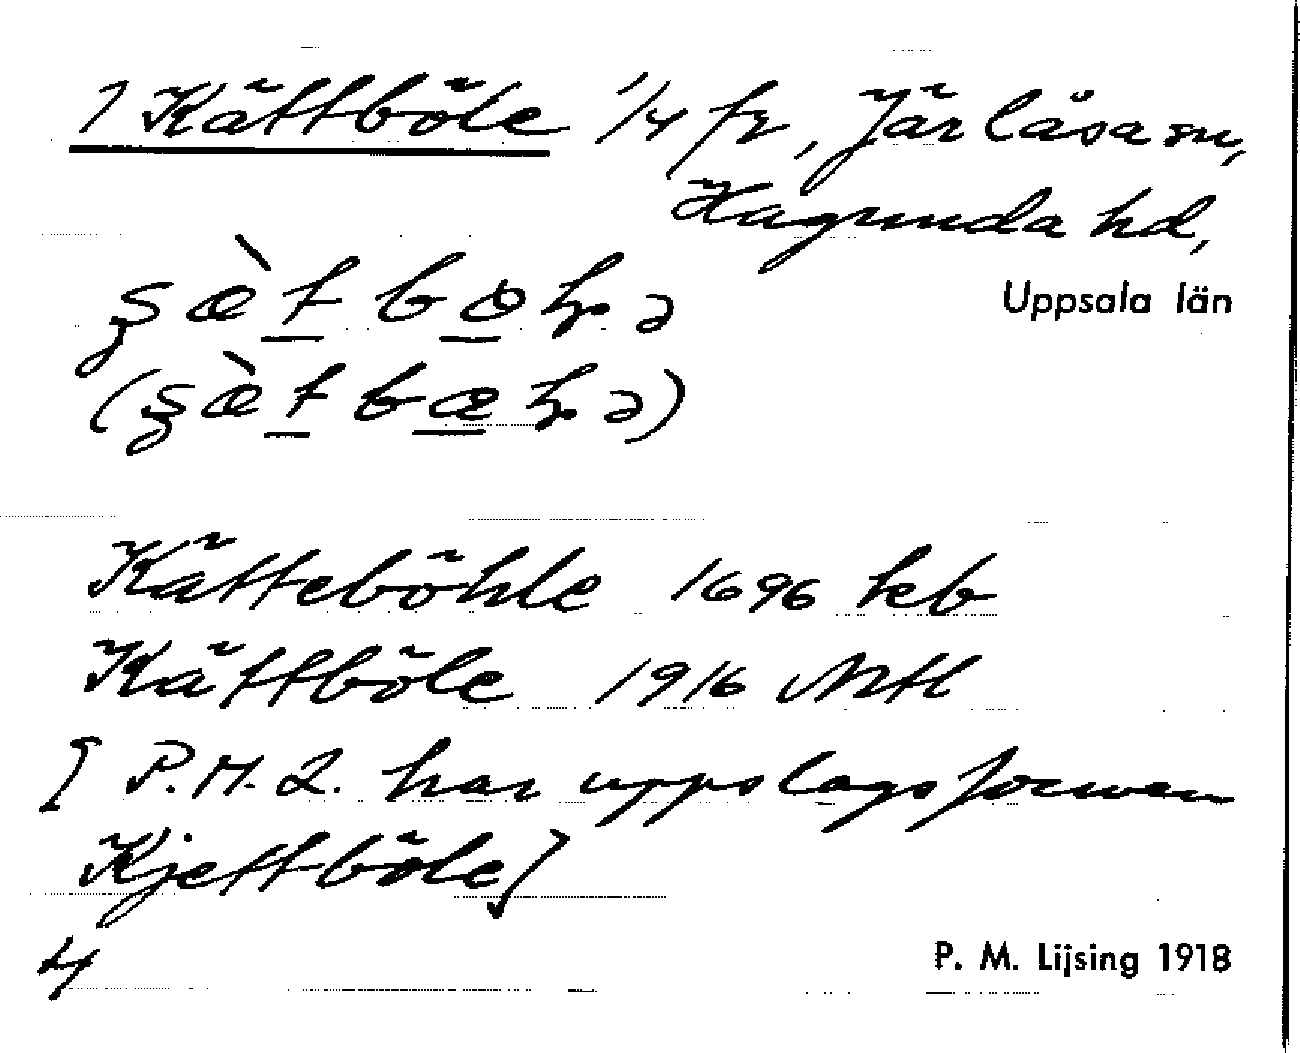 1 Kättböle 1/4 fr, Järlåsa sn,
Hagunda hd,
Uppsala län
Kätteböhle 1696 keb
Kättböle 1916 Mtl
[P.M.L. har uppslagsformen
Kjettböle]
4
P. M. Lijsing 1918